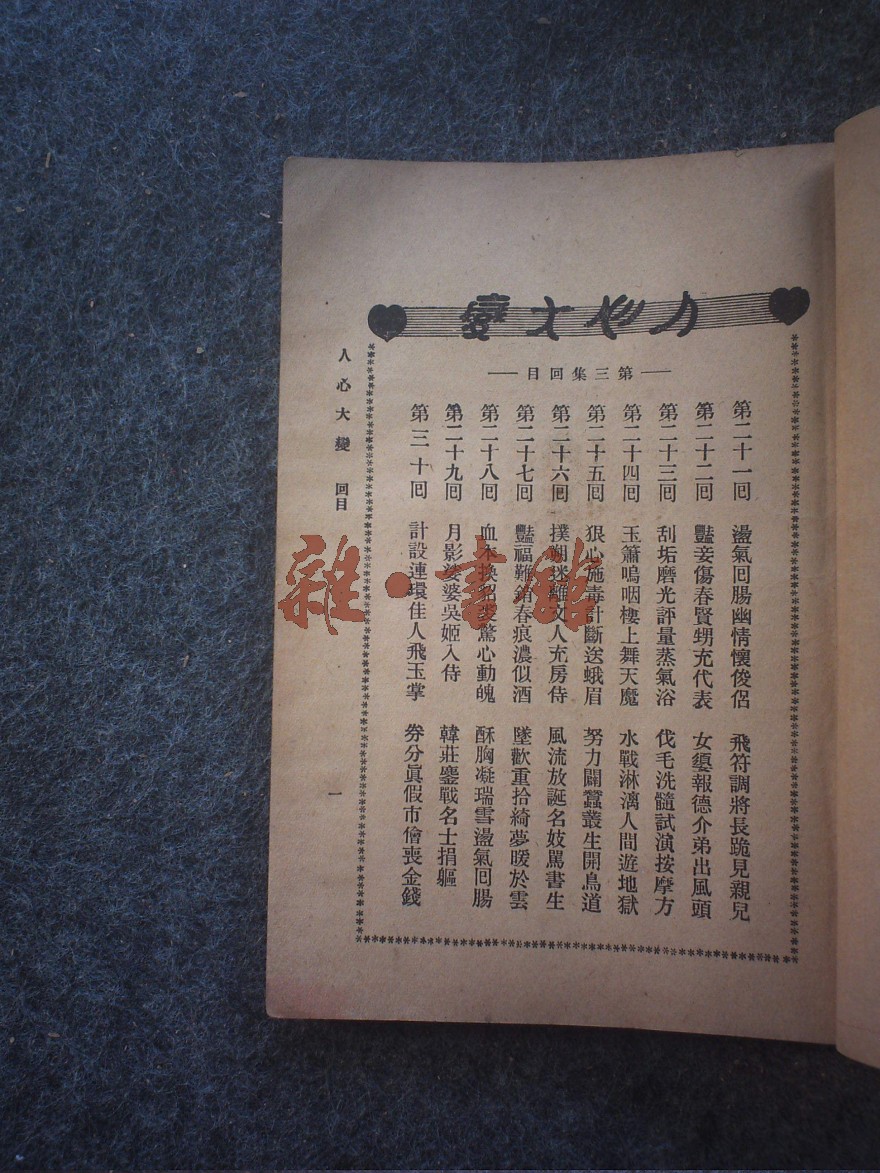 人心大變
第三集回目
第二十一回 盪氣回腸幽情懷俊侶 飛符調將長跪見親兒
第二十二回 豔妾傷春賢甥充代表 女嬃報德介弟出風頭
第二十三回 刮垢磨光評量蒸氣浴 伐毛洗髓試演按摩方
第二十四回 玉簫嗚咽樓上舞天魔 水戰淋漓人間遊地獄
第二十五回 狠心施毒計斷送蛾眉 努力闢蠶叢生開鳥道
第二十六回 撲朔迷離文人充房侍 風流放誕名妓罵書生
第二十七回 豔福難銷春痕濃似酒 墜歡重拾綺夢暖於雲
第二十八回 血本換 驚心動魄 酥胸凝瑞雪盪氣回腸
第二十九回 月影婆娑吳姬入侍 韓莊鏖戰名士捐軀
第三十回 計設連環佳人飛玉掌 券分眞假市儈喪金錢
人心大變 回目
一
雜·書館